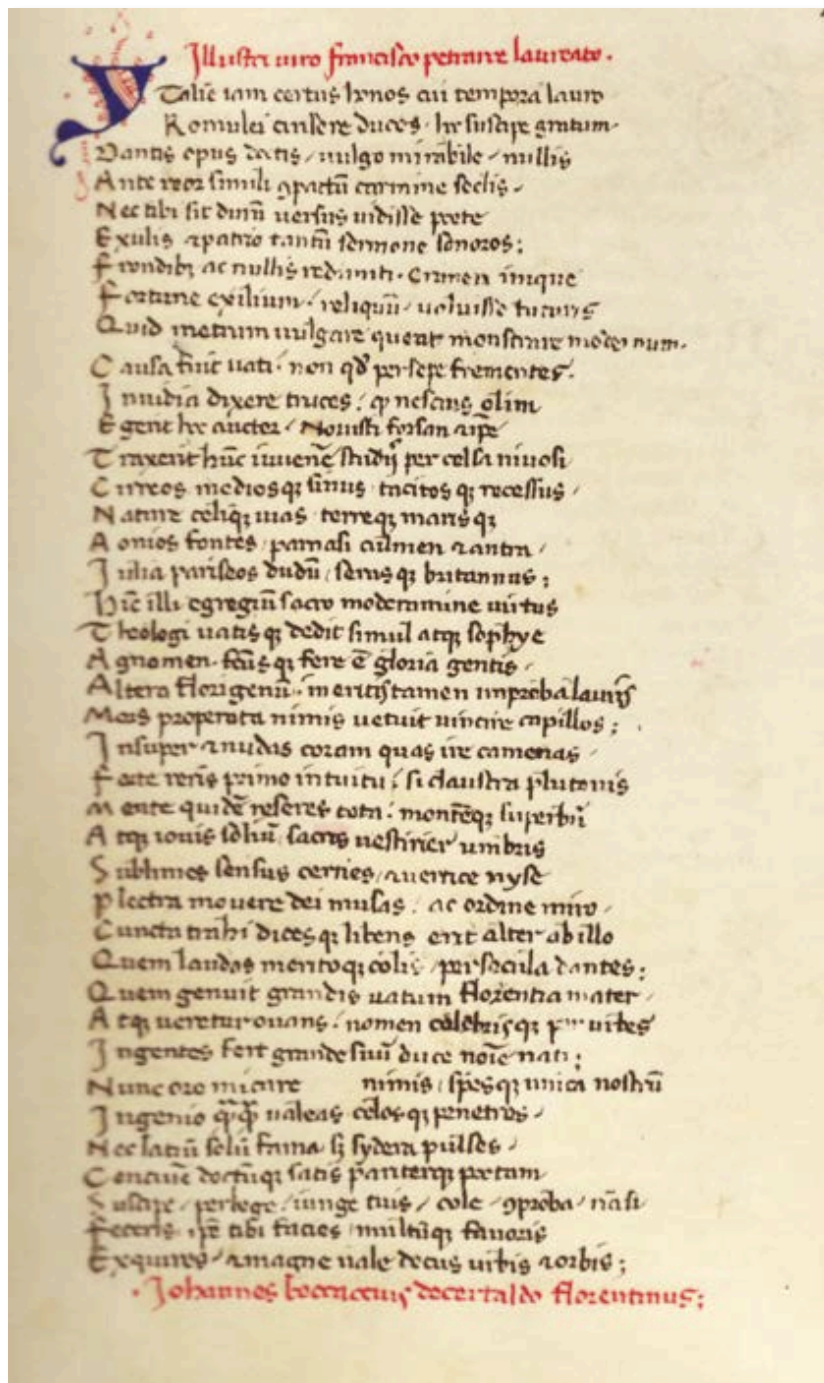 Illustri viro francisco petrarce laureato.
Ytalie iam certus honos cui tempora lauro
Romulei cinsere duces. hoc suscipe gratum.
Dantis opus doctis / uulgo mirabile / nullis
Ante reor simili ꝯpactũ carmine seclis /
Nec tibi sit durũ uersus uidisse poete
Exulis ⁊ patrio tantũ sermone sonoros;
Frondibꝫ ac nullis redimiti. Crimen inique
Fortune exilium / reliquũ / uoluisse futuris
Quid metrum uulgare queat monstrare modernum.
Causa fuit uati. non qđ persepe frementes.
Inuidia dixere truces. ꝙ nescius olim
Egerit hec auctor / Nouisti forsan ⁊ ip̃e
Traxerit hũc iuuenẽ studijs per celsa niuosi
Cirreos mediosqꝫ sinus tacitosqꝫ recessus /
Nature celiqꝫ uias terreqꝫ marisqꝫ
Aonios fontes / parnasi culmen ⁊ antra /
Iulia pariseos dudũ / serusqꝫ britannus;
Hinc illi egregiũ sacro moderamine uirtus
Theologi uatisqꝫ dedit simul atqꝫ sophye
Agnomen. fc̃usqꝫ fere ẽ gloria gentis /
Altera florigenũ. meritis tamen improba lauris
Mors properata nimis uetuit uincire capillos;
Insuper ⁊ nudas coram quas ire camenas /
Forte reris primo intuitu / si claustra plutonis
Mente quidẽ reseres tota. montẽqꝫ superbũ
Atqꝫ iouis soliũ sacris uestirier umbris
Sublimes sensus cernes / ⁊ uertice nyse
Plectra mouere dei musas. ac ordine miro /
Cuncta trahi dicesqꝫ libens erit alter ab illo
Quem laudas meritoqꝫ colis / per secula dantes;
Quem genuit grandis uatum florentia mater /
Atqꝫ ueretur ouans. nomen celebrisqꝫ p urbes
Ingentes fert grande suũ duce noĩe nati;
Nunc oro mi care nimis / spesqꝫ unica nostrũ
Ingenio q̃q̃ ualeas celosqꝫ penetres /
Nec latiũ solũ fama sꝫ sydera pulses /
Conciuẽ doctũqꝫ satis pariterqꝫ poetam
Suscipe / perlege / iunge tuis / cole / ꝯproba / nã si
Feceris ip̃e tibi facies / multũqꝫ fauoris
Exquires / ⁊ magne uale decus urbis ⁊ orbis;
Johannes boccaccius de certaldo florentinus;